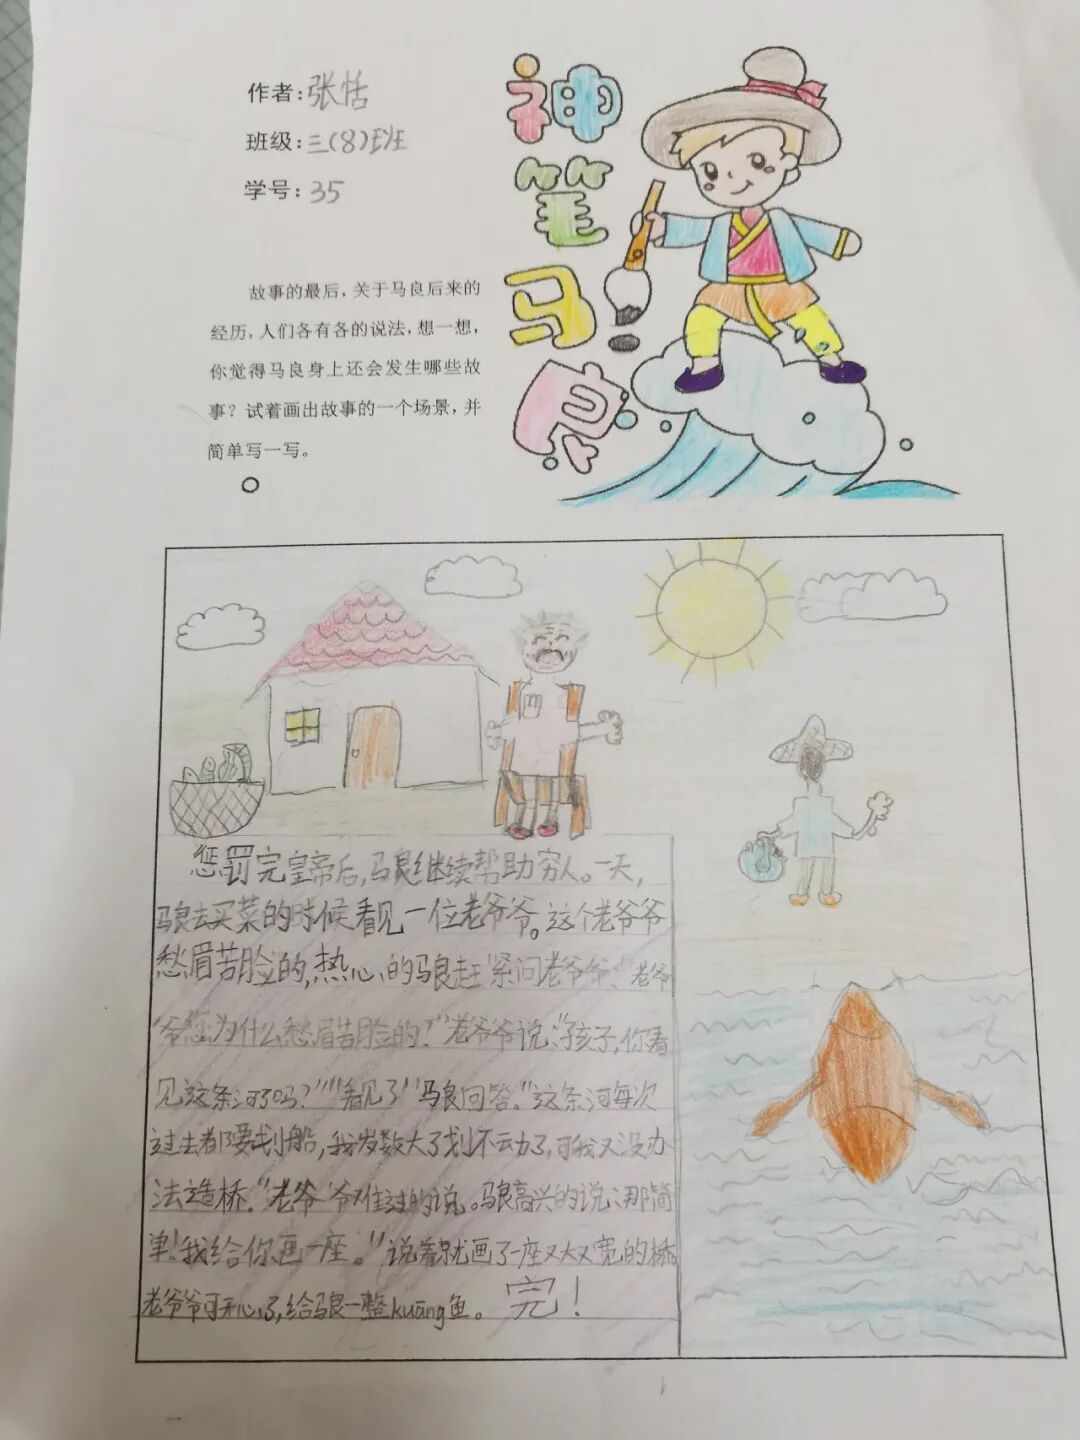 作者:张恬
班级:三(8)班
学号:35
神笔马良
故事的最后,关于马良后来的
经历,人们各有各的说法,想一想,
你觉得马良身上还会发生哪些故
事?试着画出故事的一个场景,并
简单写一写。
惩罚完皇帝后,马良继续帮助穷人。一天,
马良去买菜的时候看见一位老爷爷。这个老爷爷
愁眉苦脸的,热心的马良赶紧问老爷爷:“老爷
爷您为什么愁眉苦脸的?”老爷爷说:“孩子,你看
见这条河了吗?”“看见了”马良回答。“这条河每次
过去都要划船,我岁数大了划不动了,可我又没办
法造桥。”老爷爷难过的说。马良高兴的说:那简
单!我给你画一座。”说着就画了一座又大又宽的桥。
老爷爷可开心了,给马良一整kuāng鱼。完!